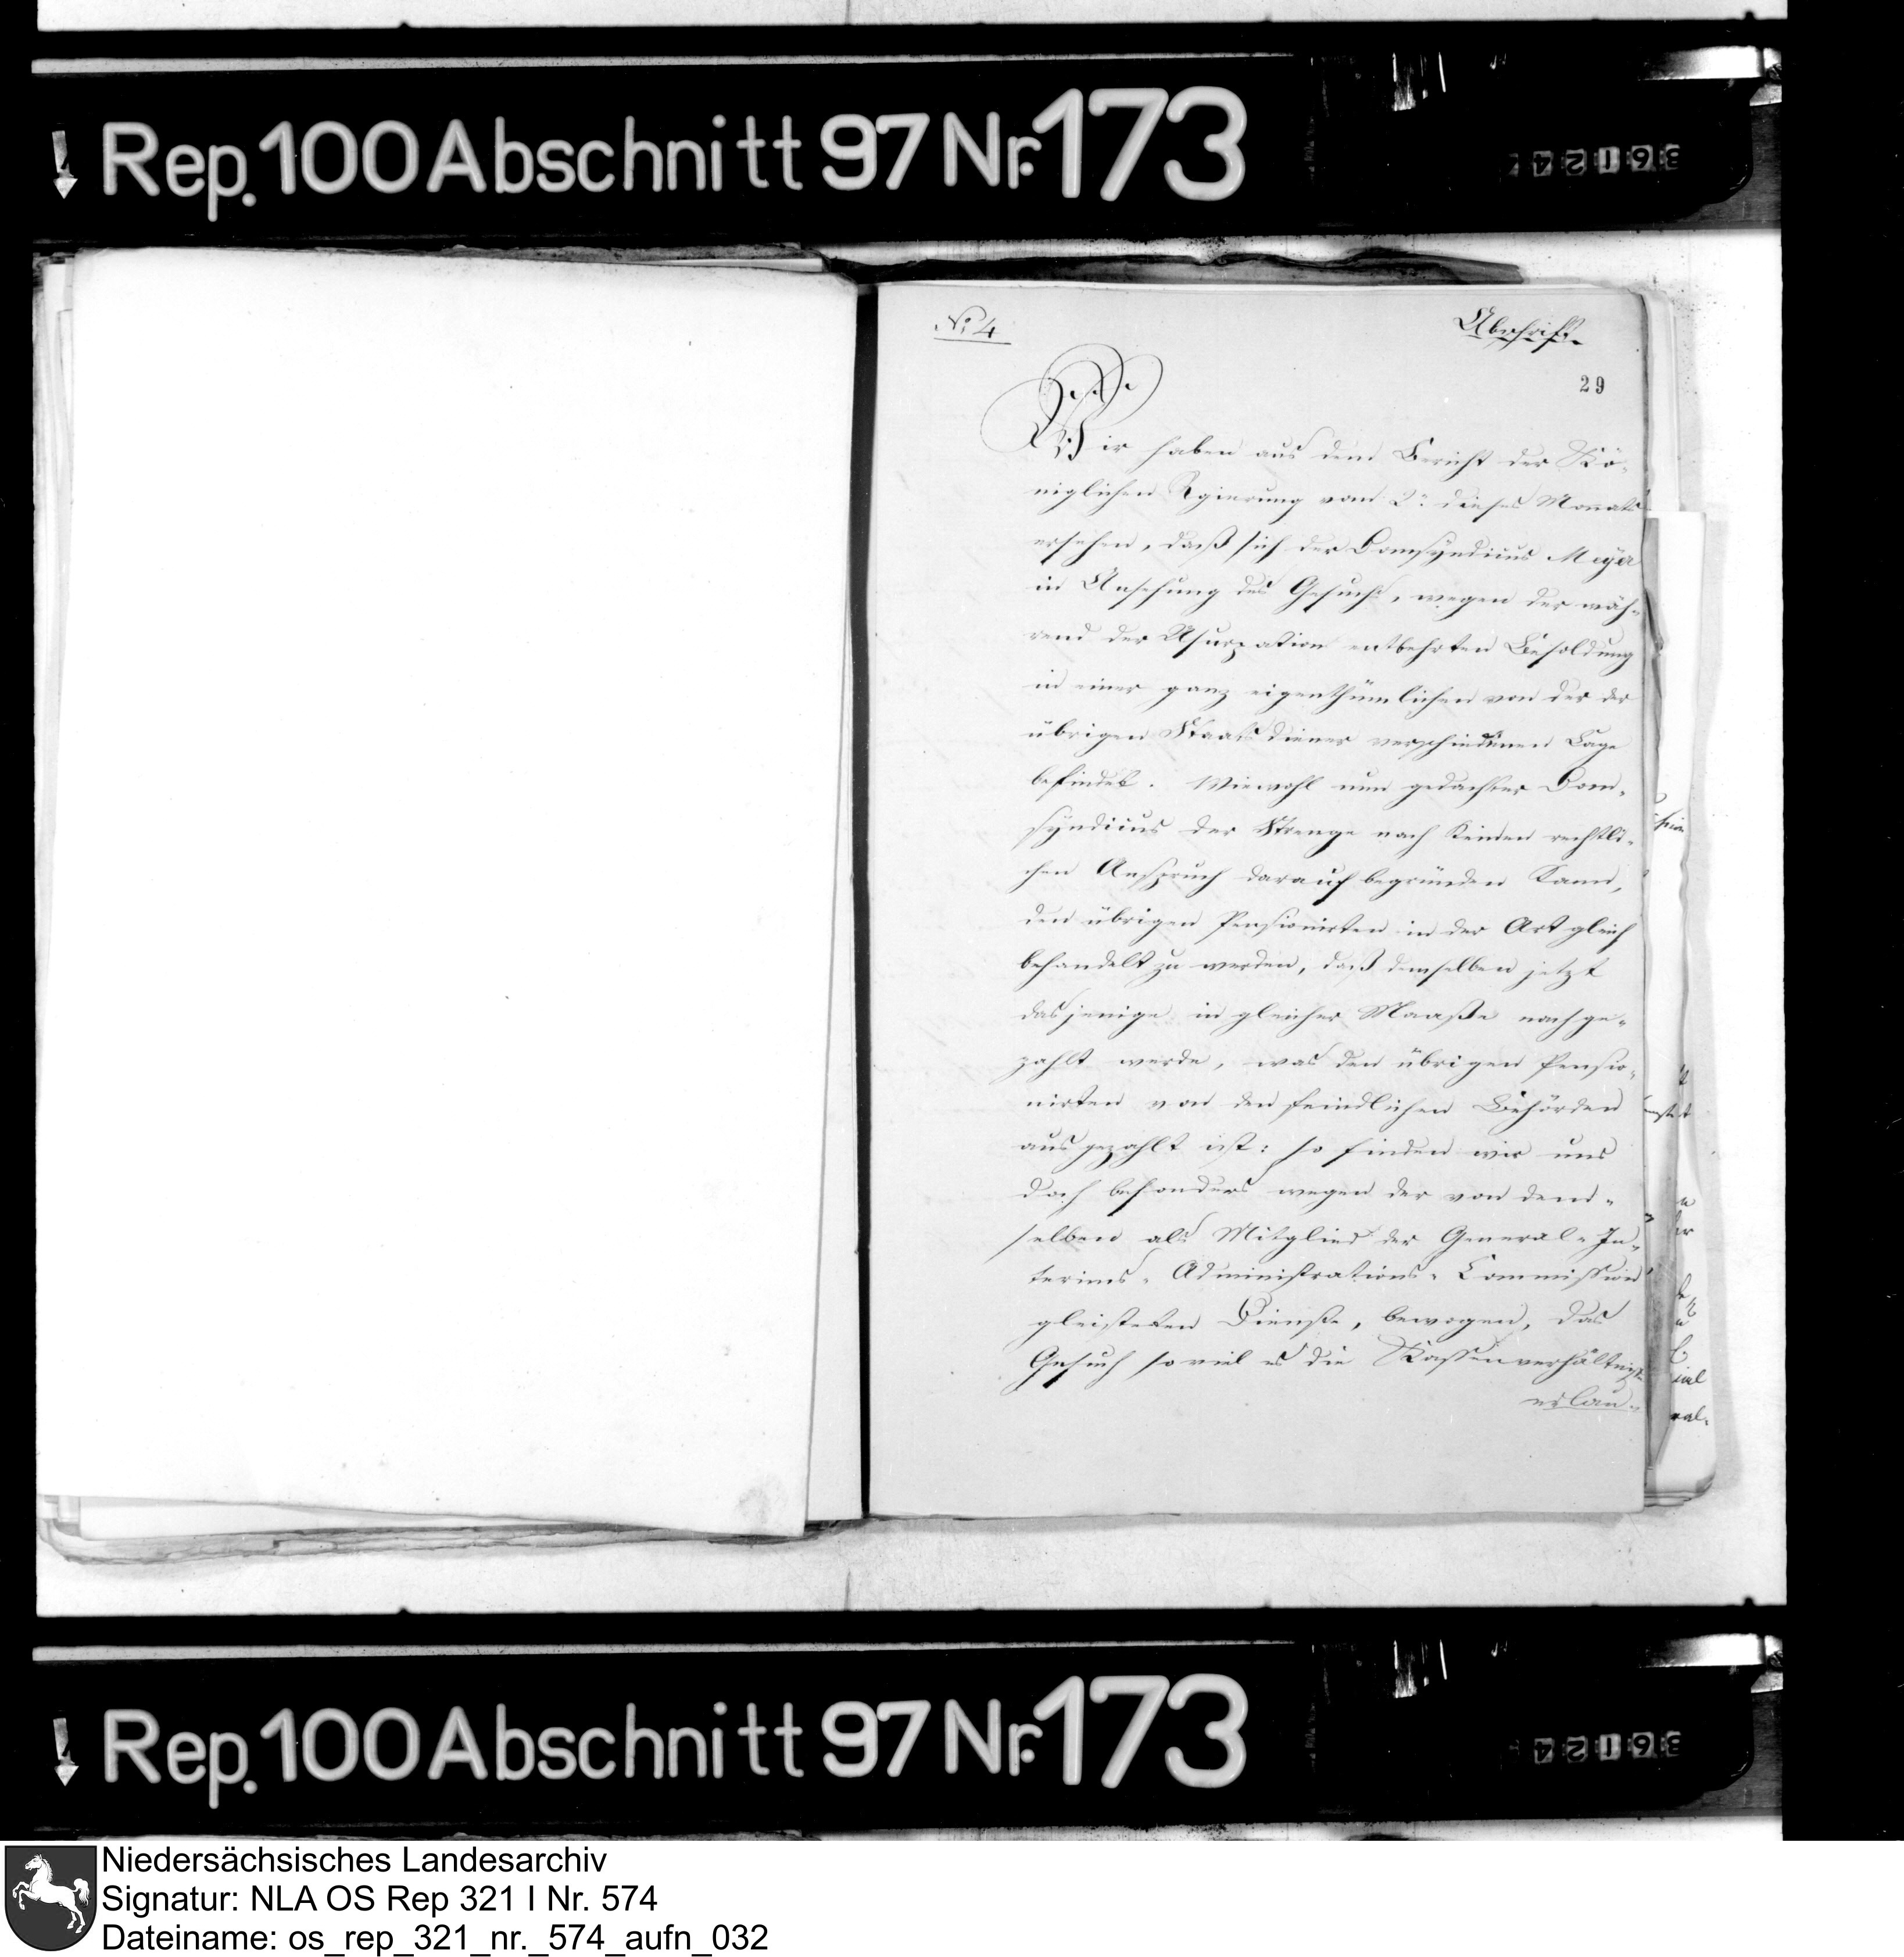 Rep. 100 Abschnitt 97 Nr. 173
36124
No 4
Abschrift.
29
Wir haben aus dem Bericht der Kö-
niglichen Regierung vom 2n dieses Monats
ersehen, daß sich der Domsyndicus Meyer
in Ansehung des Gesuchs, wegen der wäh-
rend der Usurpation entbehrten Besoldung
in einer ganz eigenthümlichen von der der
übrigen Staatsdiener verschiedenen Lage
befindet. Wiewohl nun gedachter Dom-
syndicus der Strenge nach keinen rechtli-
chen Anspruch darauf begründen kann,
den übrigen Pensionirten in der Art gleich
behandelt zu werden, daß demselben jetzt
dasjenige in gleicher Maaße nachge-
zahlt werde, was den übrigen Pensio-
nirten von den feindlichen Behörden
ausgezahlt ist: so finden wir uns
doch besonders wegen der von dem-
selben als Mitglied der General-In-
terims-Administrations-Commission
gleisteten Dienste, bewogen, das
Gesuch so viel es die Kassenverhältniße
erlau-
Rep. 100 Abschnitt 97 Nr. 173
36124
Niedersächsisches Landesarchiv
Signatur: NLA OS Rep 321 I Nr. 574
Dateiname: os_rep_321_nr._574_aufn_032